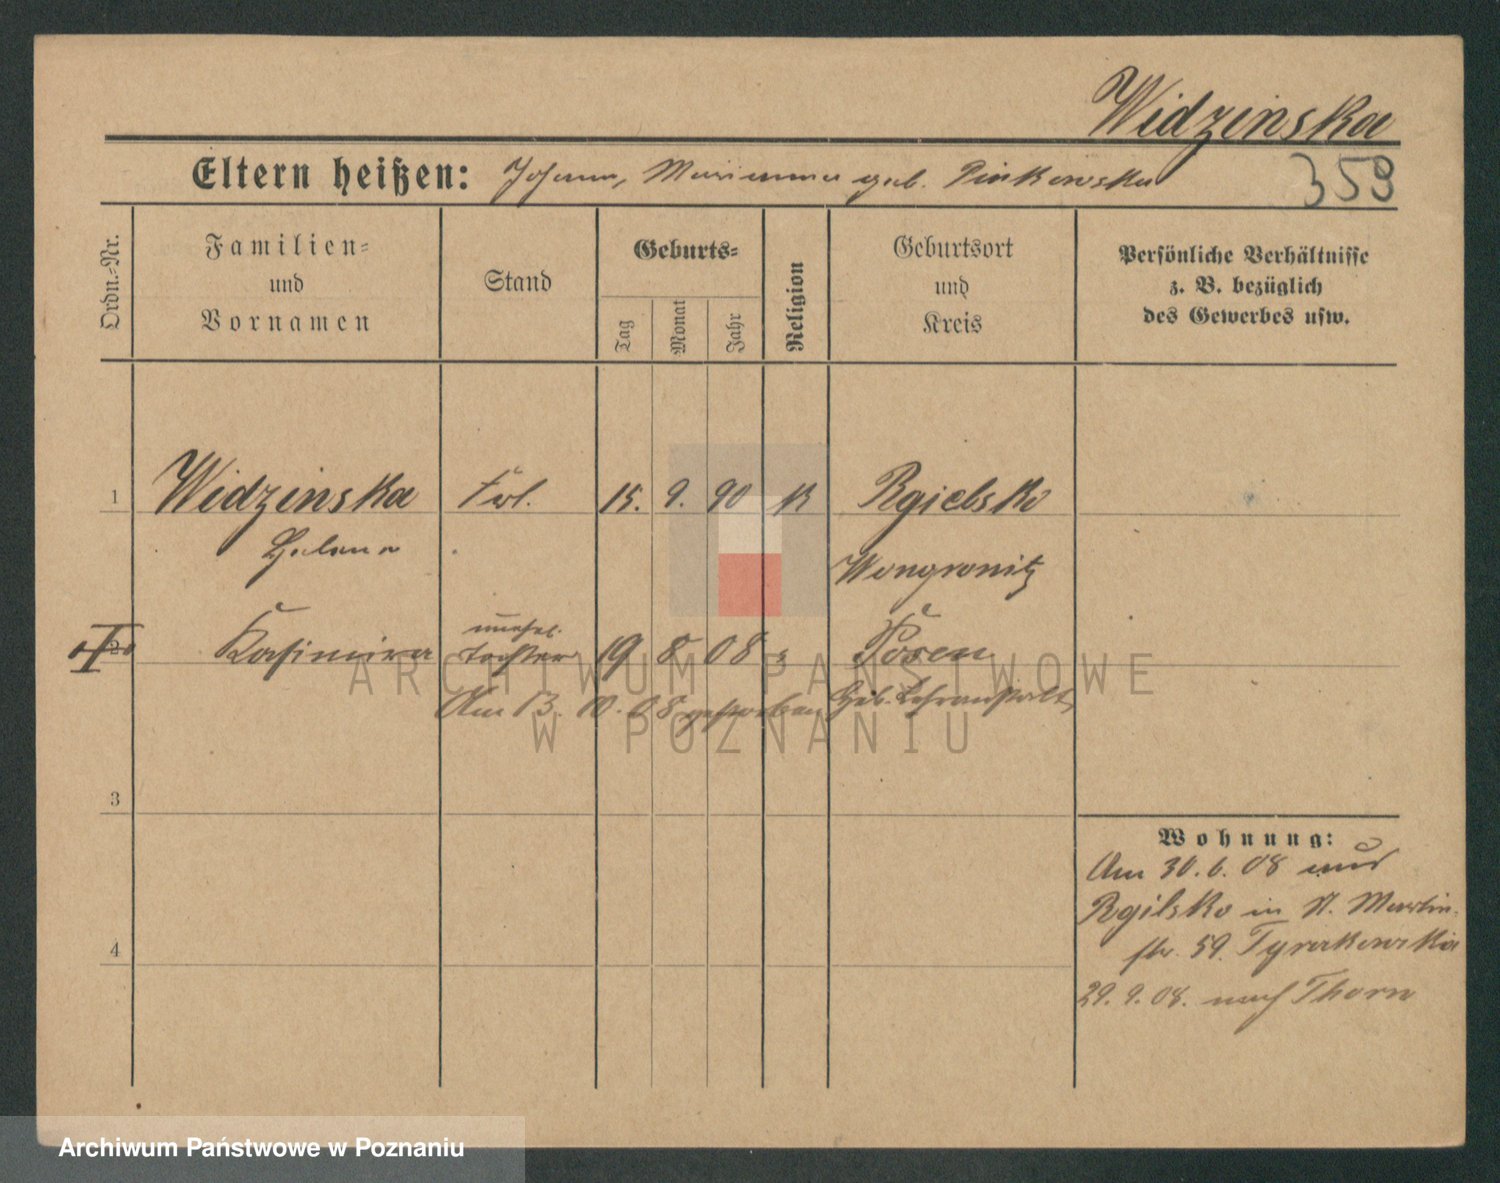 Widzinska
Eltern heißen: Johann, Marianna geb. Pinkowska
359
Ordn.-Nr.
Familien-
und
Vornamen
Stand
Geburts-
Tag
Monat
Jahr
Religion
Geburtsort
und
Kreis
Persönliche Verhältnisse
z. B. bezüglich
des Gewerbes usw.
1 Widzinska Frl. 15. 9. 90 K Rgielsko
Helena Wongrowitz
unehel.
2 Kasimira Tochter 19 8 08 Posen
Am 13. 10. 08 gestorben Heb. Lehranstalt
3
4
Wohnung:
Am 30. 6. 08 aus
Rgilsko in St. Martin-
str. 59. Tyrakowska
29. 9. 08. nach Thorn
ARCHIWUM PAŃSTWOWE
W POZNANIU
Archiwum Państwowe w Poznaniu